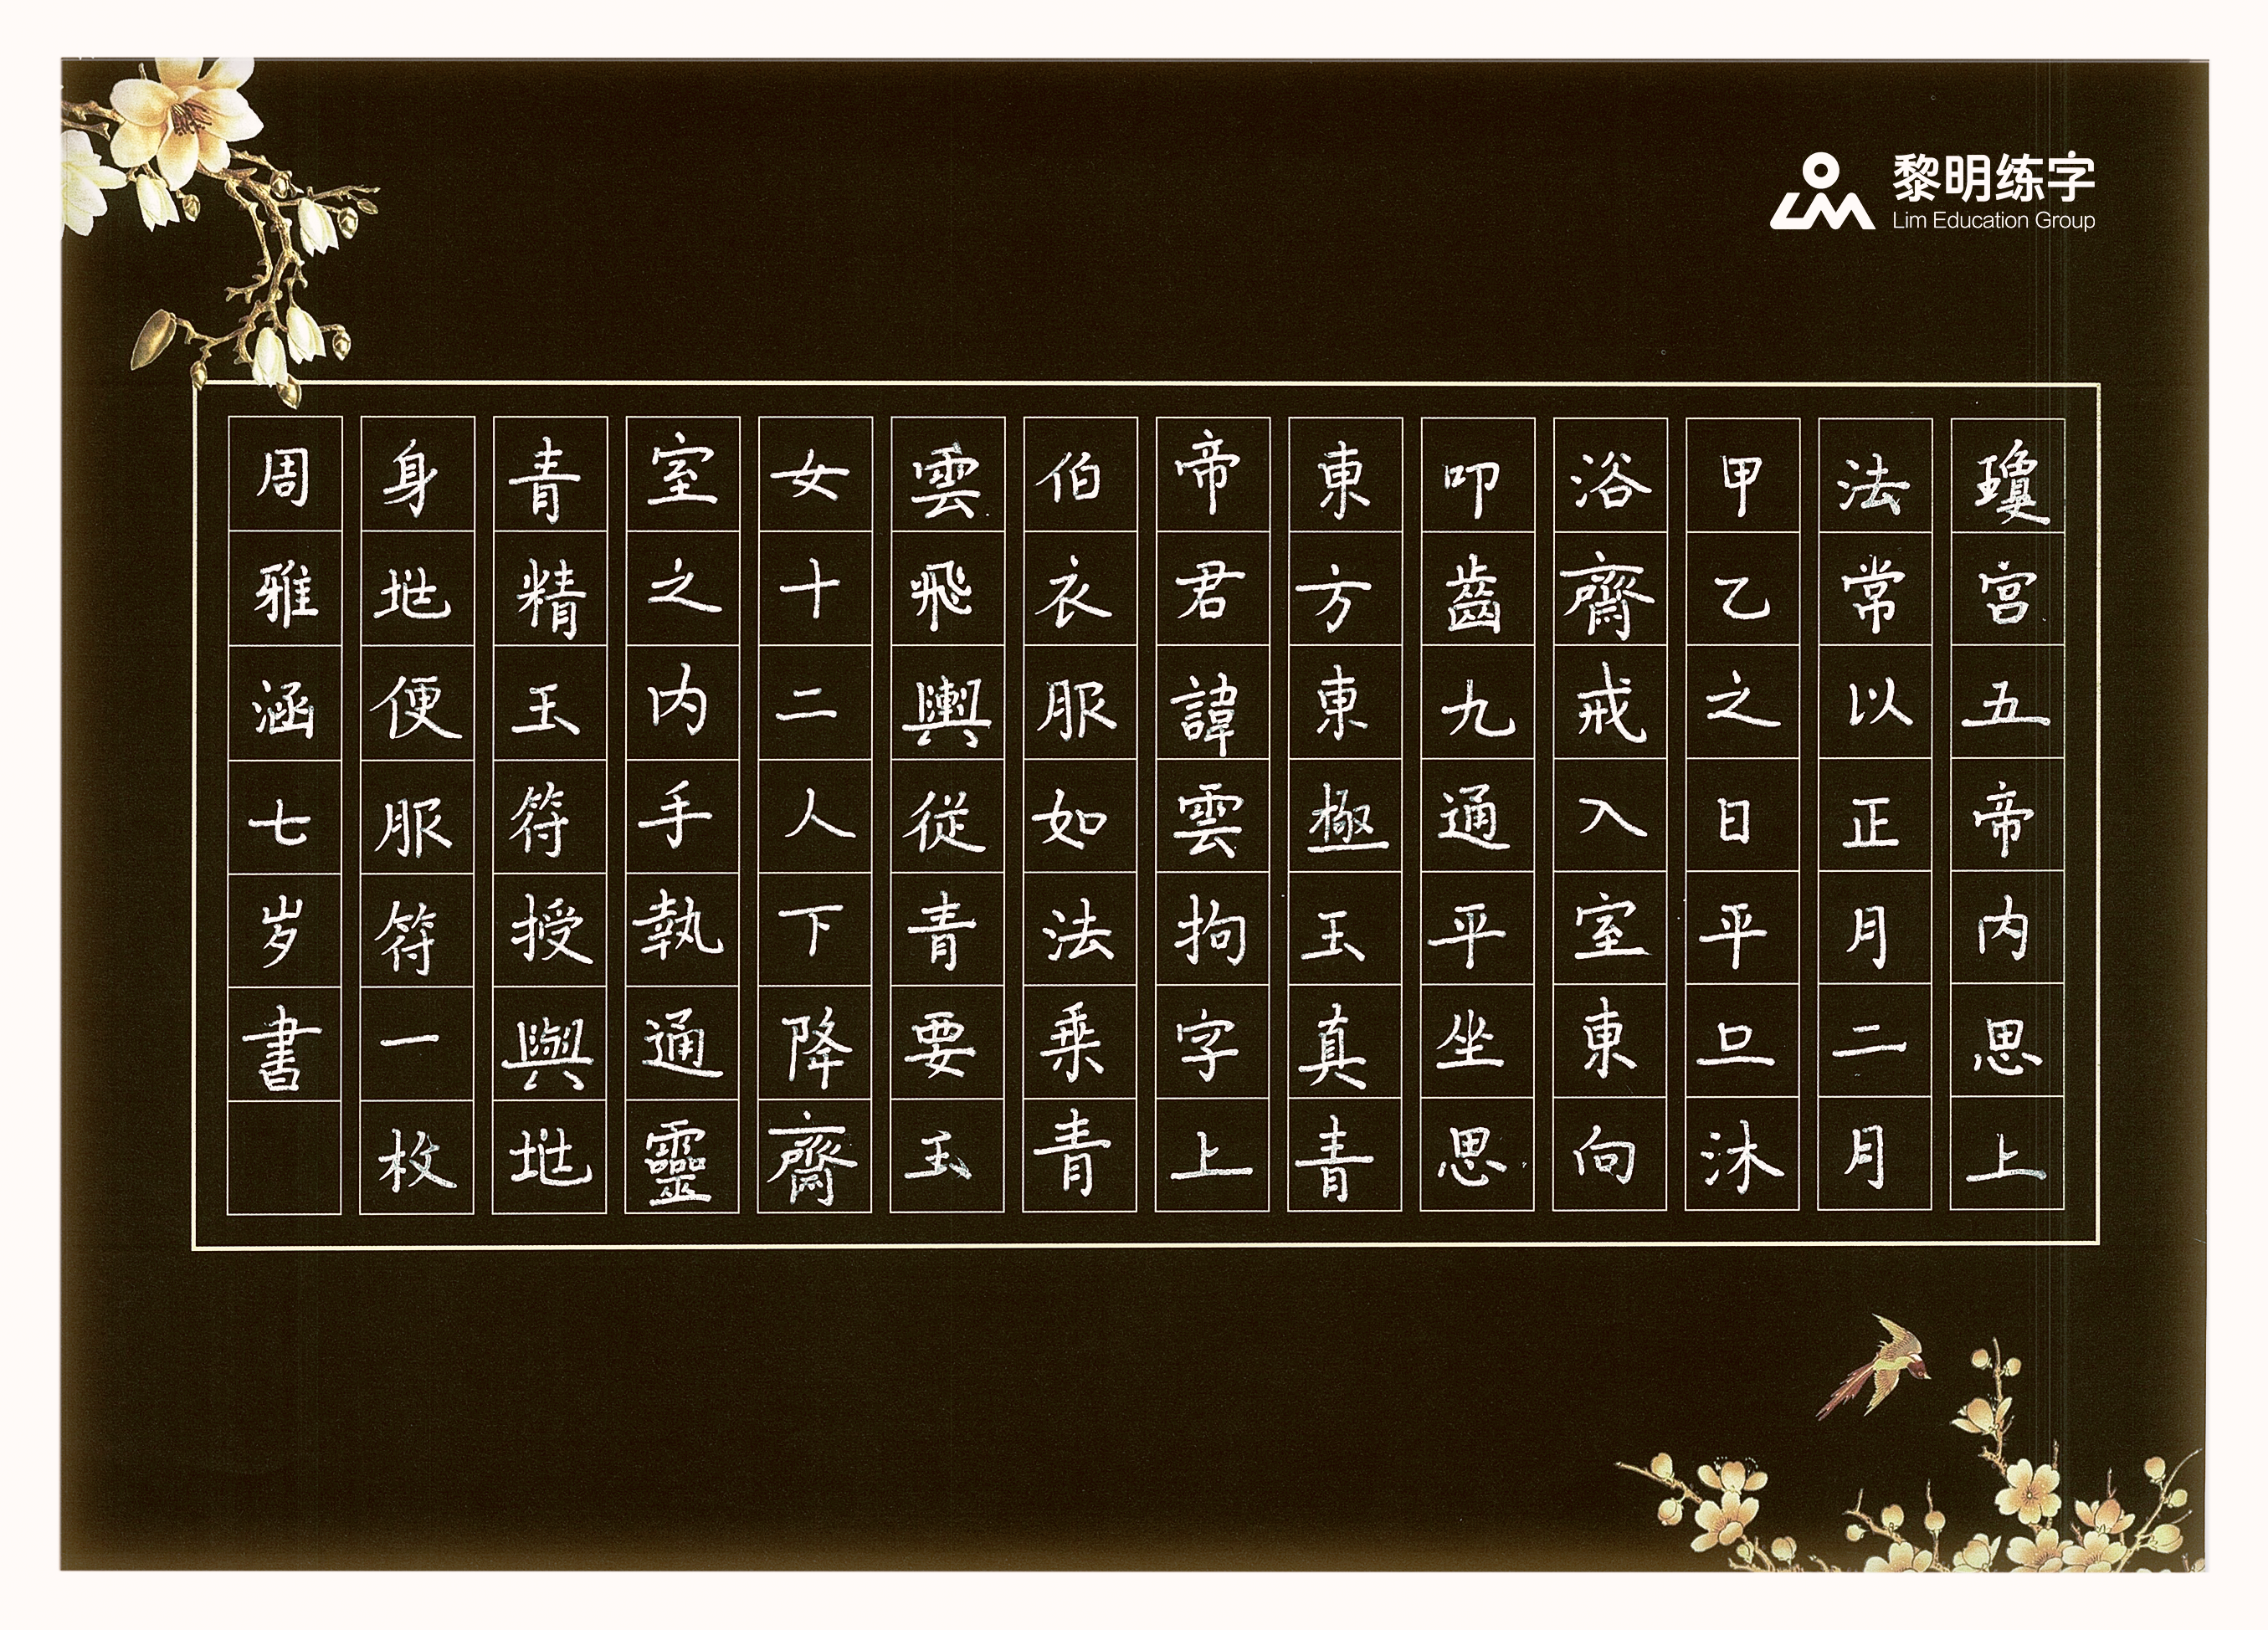 黎明练字
Lim Education Group
瓊宫五帝内思上
法常以正月二月
甲乙之日平旦沐
浴齋戒入室東向
叩齒九通平坐思
東方東極玉真青
帝君諱雲拘字上
伯衣服如法乗青
雲飛輿從青要玉
女十二人下降齋
室之内手執通靈
青精玉符授與地
身地便服符一枚
周雅涵七岁書